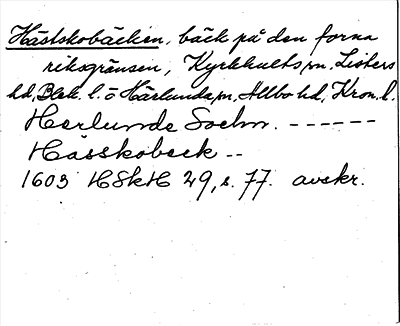 Hästskobäcken, bäck på den forna
riksgränsen, Kyrkhults sn, Listers
hd, Blek. l. o Härlunda sn, Allbo hd, Kron. l.
Herlunde Sochn. ------
Hässkobeck --
1603 HSkH 29, s. 77. avskr.